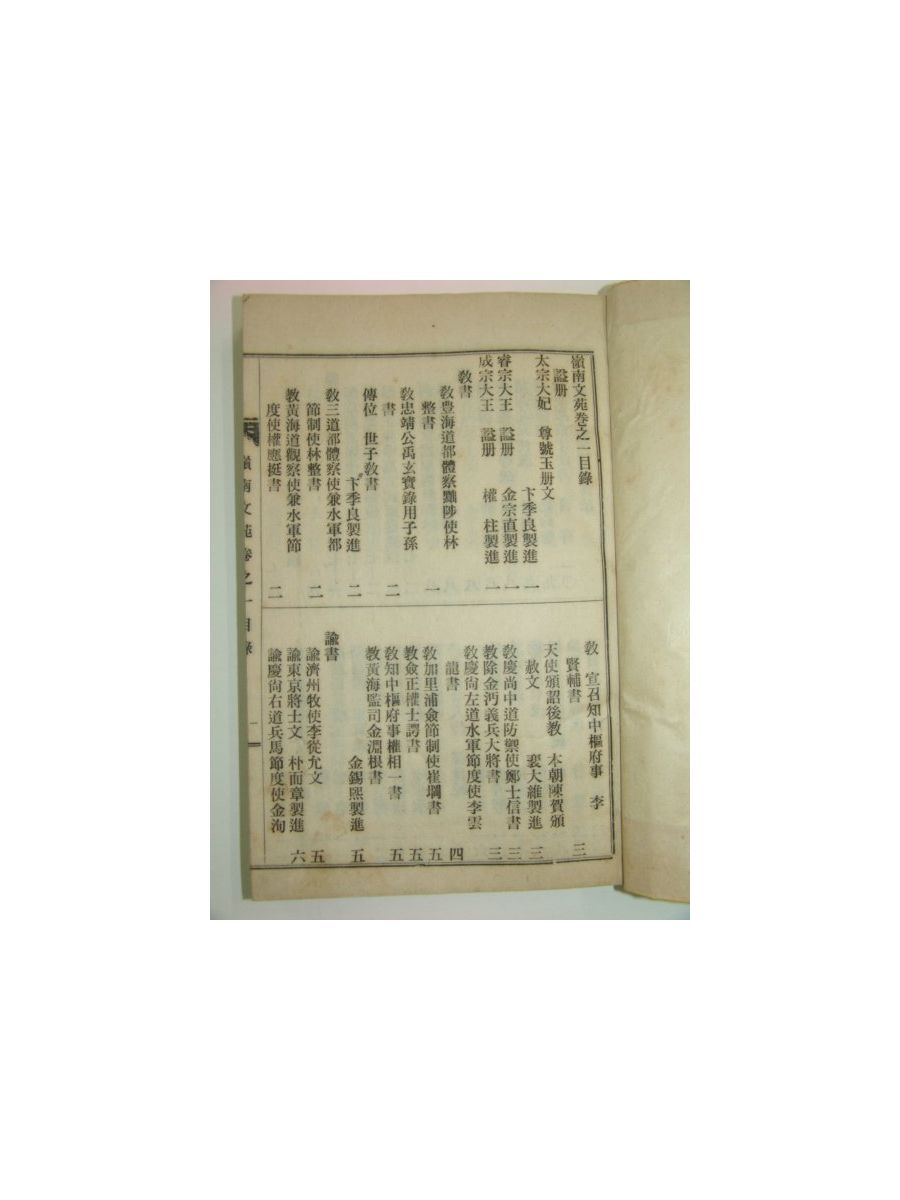 嶺南文苑卷之一目錄
諡册
太宗大妃 尊號玉册文
卞季良製進 一
睿宗大王 諡册 金宗直製進 一
成宗大王 諡册 權 柱製進 一
敎書
敎豊海道都體察黜陟使林
整書 一
敎忠靖公禹玄寶錄用子孫
書 二
傳位 世子敎書
卞季良製進 二
敎三道都體察使兼水軍都
節制使林整書 二
敎黃海道觀察使兼水軍節
度使權應挺書 二
敎 宣召知中樞府事 李
賢輔書 三
天使頒詔後教 本朝陳賀頒
赦文 裵大維製進 三
敎慶尚中道防禦使鄭士信書 三
敎除金沔義兵大將書 三
敎慶尙左道水軍節度使李雲
龍書 四
敎加里浦僉節制使崔堈書 五
敎僉正權士諤書 五
敎知中樞府事權相一書 五
敎黃海監司金淵根書
金錫熙製進 五
諭書
諭濟州牧使李從允文 五
諭東京將士文 朴而章製進 六
諭慶尙右道兵馬節度使金洵
嶺南文苑卷之一 目錄 一